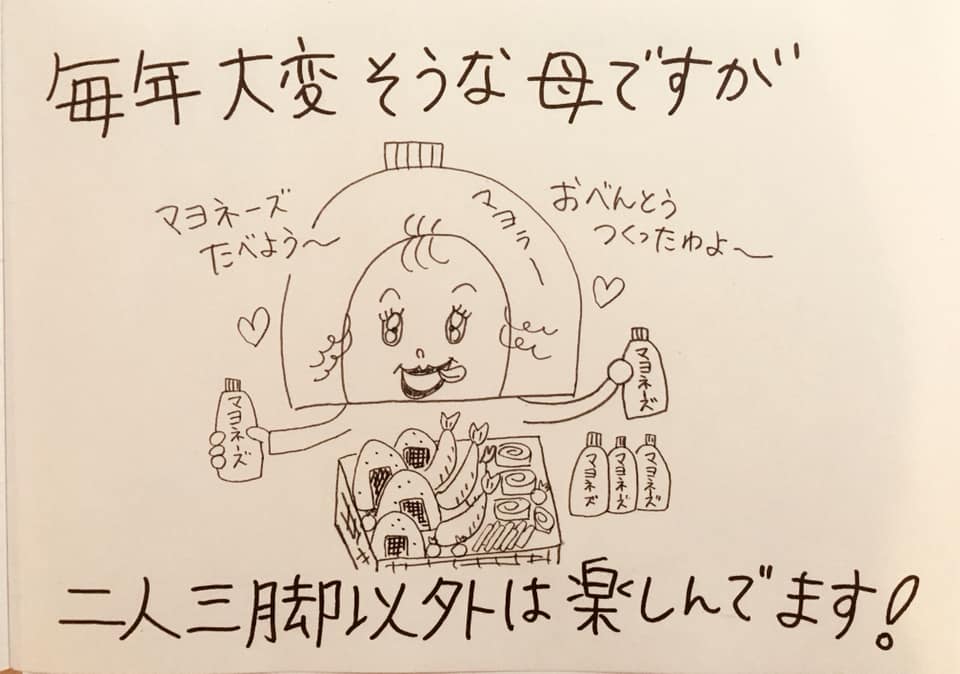 毎年大変そうな母ですが
マヨネーズ
たべよう〜
マヨラー
おべんとう
つくったわよ〜
マヨネーズ
マヨネーズ
マヨネズ
マヨネーズ
マヨネーズ
二人三脚以外は楽しんでます!